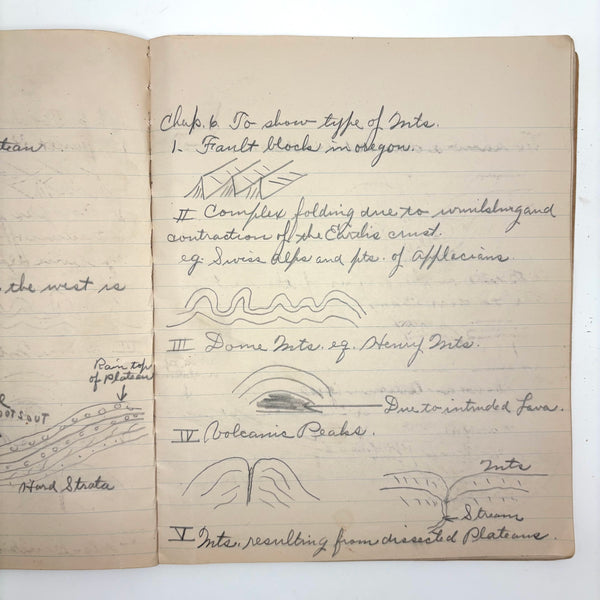 teau
the west is
Rain top
of Plateau
Hard Strata
Chap. 6. To show type of Mts.
1. Fault blocks in oregon.
II Complex folding due to and
contraction of the Earth's crust.
eg. Swiss alps and pts. of Applacians
III Dome Mts. eg. Henry Mts.
Due to intruded Lava.
IV Volcanic Peaks.
Mts
Stream
V Mts. resulting from dissected Plateaus.